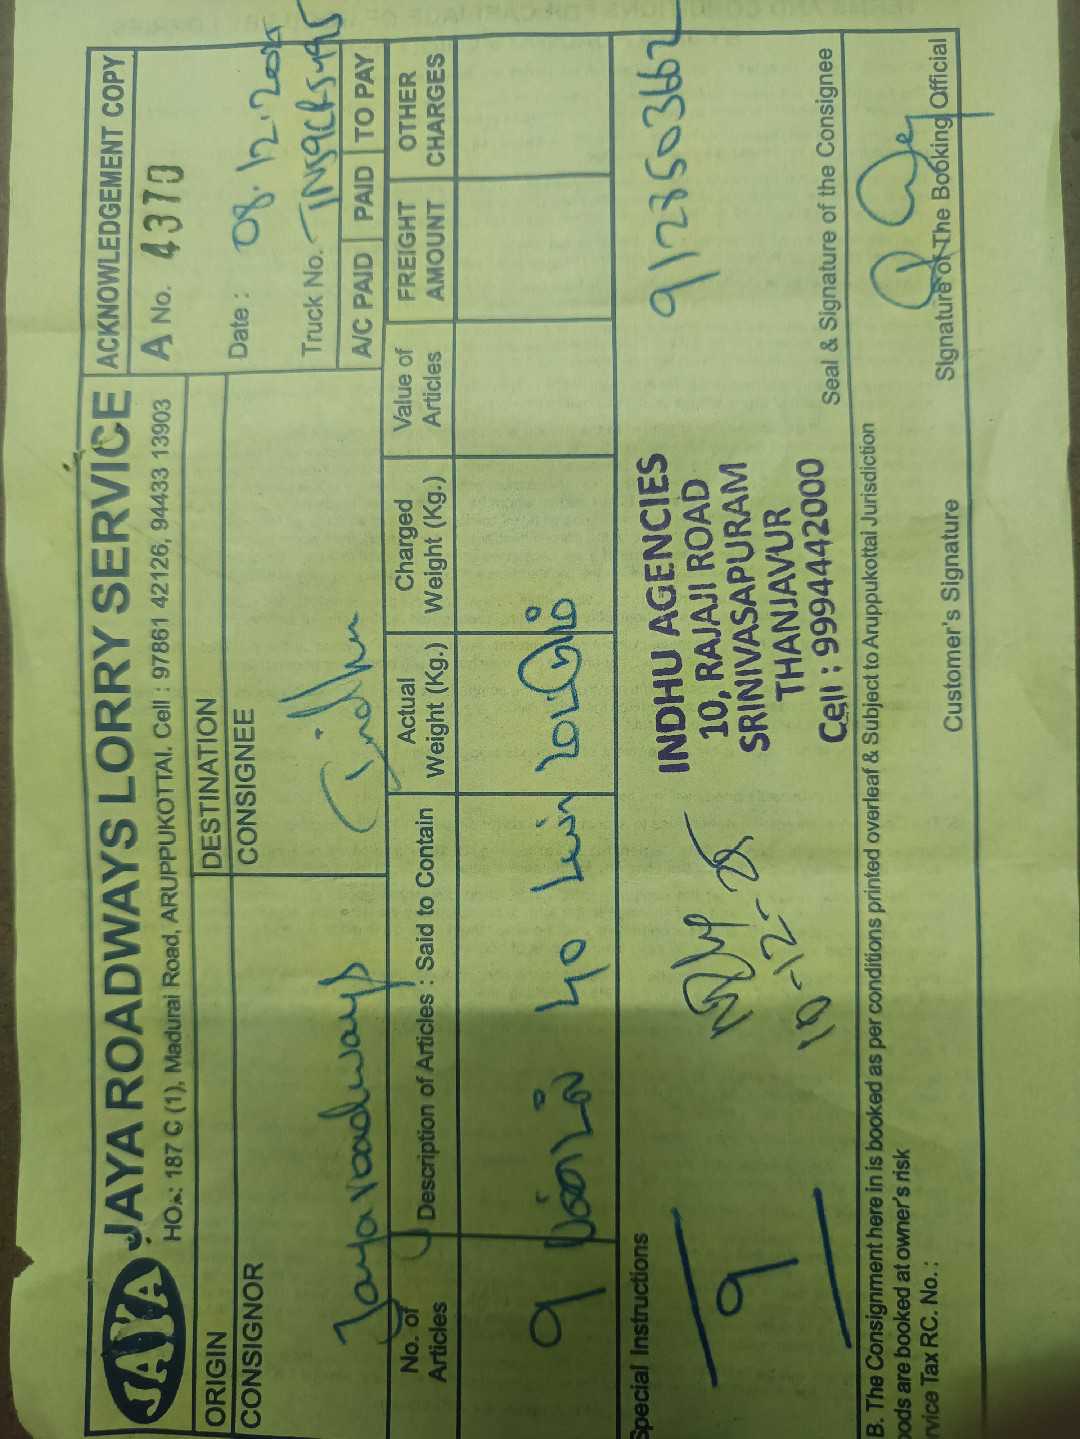 JAYA
JAYA ROADWAYS LORRY SERVICE
HO.: 187 C (1), Madurai Road, ARUPPUKOTTAI. Cell : 97861 42126, 94433 13903
ACKNOWLEDGEMENT COPY
A No. 4370
ORIGIN
DESTINATION
Date : 08.12.2025
CONSIGNOR
CONSIGNEE
Jaya roadways
Indhu
Truck No.
A/C PAID PAID TO PAY
No. of Articles
Description of Articles : Said to Contain
Actual Weight (Kg.)
Charged Weight (Kg.)
Value of Articles
FREIGHT AMOUNT
OTHER CHARGES
9 பண்டல் 40
Special Instructions
9
10-12-25
INDHU AGENCIES
10, RAJAJI ROAD
SRINIVASAPURAM
THANJAVUR
Cell : 9994442000
9128503662
Seal & Signature of the Consignee
B. The Consignment here in is booked as per conditions printed overleaf & Subject to Aruppukottai Jurisdiction
ods are booked at owner's risk
rvice Tax RC. No. :
Customer's Signature
Signature of The Booking Official